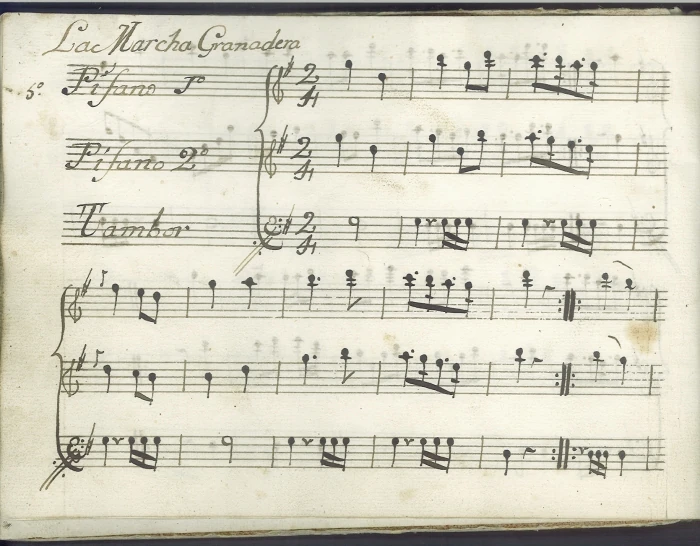 La Marcha Granadera
5º
Pifano 1º
2
4
Pifano 2º
2
4
Tambor
2
4